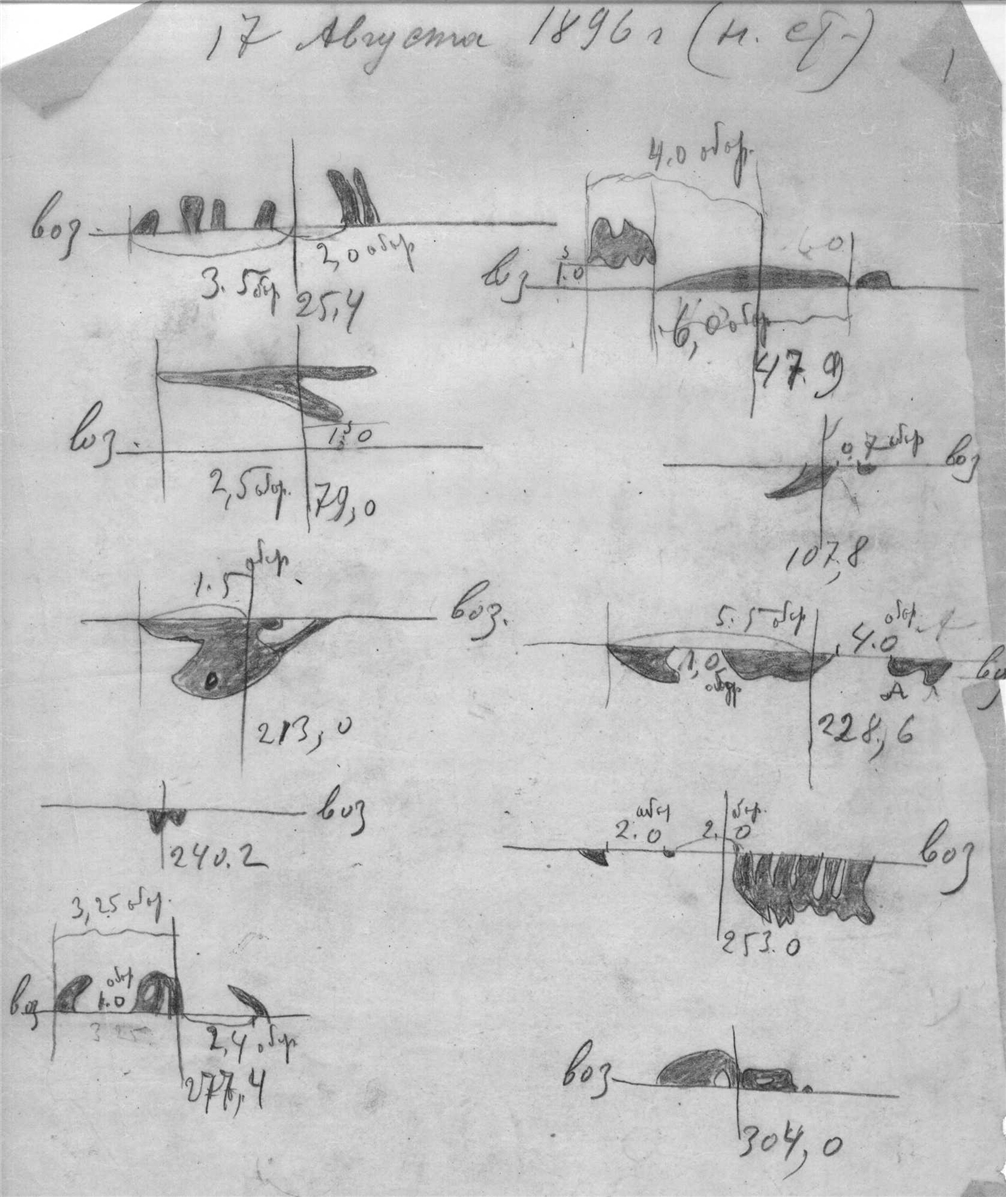 17 Августа 1896 г (н. ст.)
1
4.0 обор.
воз
3.5 обор
2,0 обор
25,4
воз
1.0
6.0
6,0 обор
47.9
воз.
1,0
2,5 обор.
79,0
0,7 обор
воз
107,8
1.5 обор.
воз.
213,0
5.5 обор
4.0 обор.
1,0 обор
A
воз
228,6
воз
240.2
2.0 обор
2.0 обор.
воз
253.0
3,25 обор.
воз
1.0 обор
3.25
2,4 обор
277,4
воз
304,0